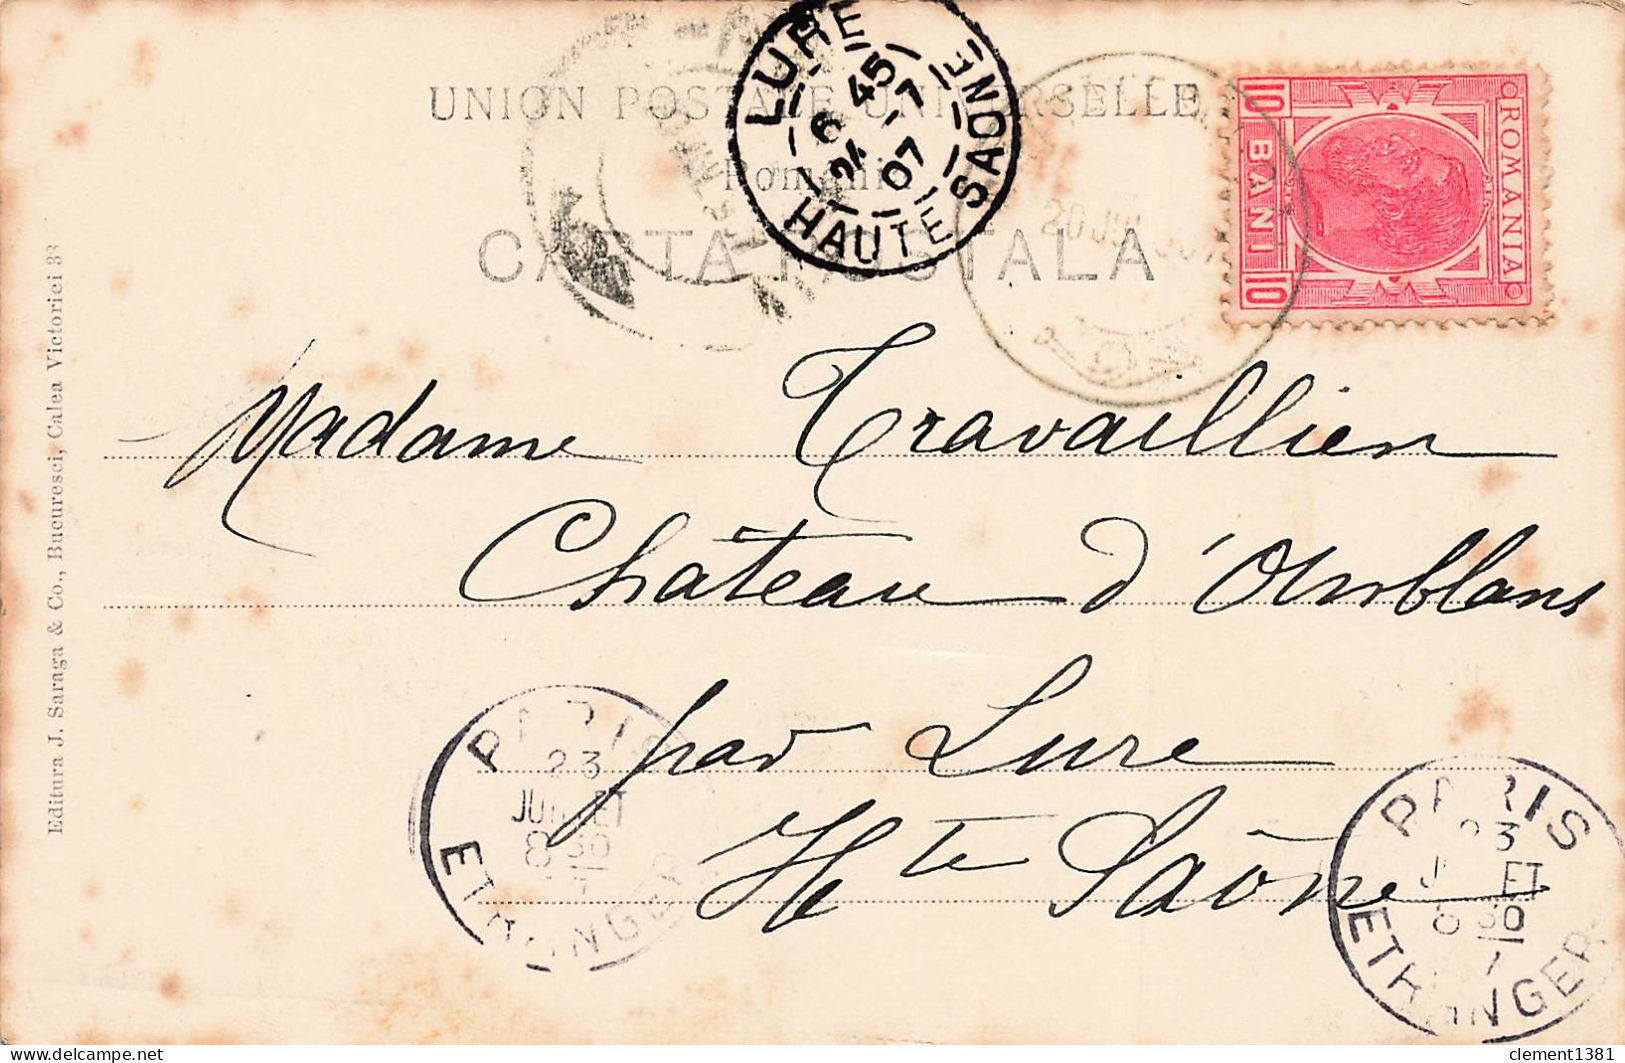 UNION POSTALE UNIVERSELLE
Romania
CARTA POSTALA
LURE
6 45
24 - 7
07
HAUTE SAONE
20 JUL
ROMANIA
10 BANI 10
Madame Travaillien
Château d'
par Lure
Hte Saône
PARIS
23
JUILLET
8 30
ETRANGER
PARIS
23
JUILLET
8 30
7
ETRANGER
Editura J. Saraga & Co., Bucuresci, Calea Victoriei 33
clement1381
delcampe.net